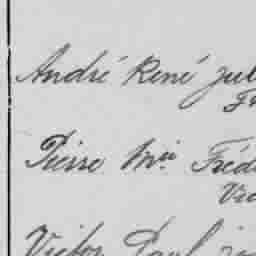 André René Jul
Fr
Pierre Mie Fréd
Vic
Victor Paul jo